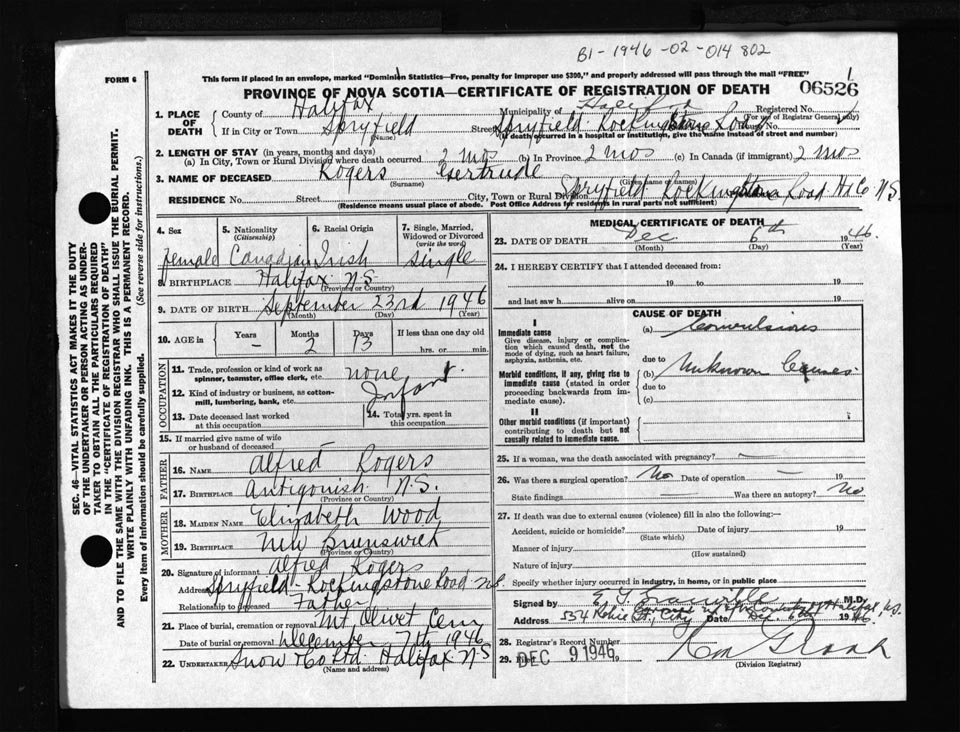 B1-1946-02-014802
FORM 6
This form if placed in an envelope, marked "Dominion Statistics—Free, penalty for improper use $300," and properly addressed will pass through the mail "FREE"
PROVINCE OF NOVA SCOTIA—CERTIFICATE OF REGISTRATION OF DEATH
06526
1. PLACE OF DEATH
County of Halifax Municipality of Halifax Registered No.
(For use of Registrar General only)
If in City or Town Spryfield (Name) Street Spryfield Rockingstone Road House No.
(If death occurred in a hospital or institution, give the name instead of street and number)
2. LENGTH OF STAY (in years, months and days)
(a) In City, Town or Rural Division where death occurred 2 mos (b) In Province 2 mos (c) In Canada (if immigrant) 2 mos
3. NAME OF DECEASED Rogers Gertrude
(Surname) (Given name or names)
RESIDENCE No. Street City, Town or Rural Division Spryfield Rockingstone Road Hx Co N.S.
(Residence means usual place of abode. Post Office Address for residents in rural parts not sufficient)
SEC. 46—VITAL STATISTICS ACT MAKES IT THE DUTY
OF THE UNDERTAKER OR PERSON ACTING AS UNDER-
TAKER TO OBTAIN ALL THE PARTICULARS REQUIRED
IN THE "CERTIFICATE OF REGISTRATION OF DEATH"
AND TO FILE THE SAME WITH THE DIVISION REGISTRAR WHO SHALL ISSUE THE BURIAL PERMIT.
WRITE PLAINLY WITH UNFADING INK. THIS IS A PERMANENT RECORD.
Every item of information should be carefully supplied. (See reverse side for instructions.)
4. Sex
Female
5. Nationality
(Citizenship)
Canadian
6. Racial Origin
Irish
7. Single, Married, Widowed or Divorced
(write the word)
Single
8. BIRTHPLACE Halifax N.S.
(Province or Country)
9. DATE OF BIRTH September 23rd 1946
(Month) (Day) (Year)
10. AGE in Years Months Days If less than one day old
- 2 13 hrs. or min.
OCCUPATION
11. Trade, profession or kind of work as
spinner, teamster, office clerk, etc. none
12. Kind of industry or business, as cotton-
mill, lumbering, bank, etc. Infant.
13. Date deceased last worked
at this occupation
14. Total yrs. spent in
this occupation
15. If married give name of wife
or husband of deceased
FATHER
16. NAME Alfred Rogers
17. BIRTHPLACE Antigonish N.S.
(Province or Country)
MOTHER
18. MAIDEN NAME Elizabeth Wood
19. BIRTHPLACE New Brunswick
(Province or Country)
20. Signature of informant Alfred Rogers
Address Spryfield - Rockingstone Road N.S.
Relationship to deceased Father
21. Place of burial, cremation or removal Mt Olivet Cem
Date of burial or removal December 7th 1946
22. UNDERTAKER Snow & Co Ltd. Halifax N.S
(Name and address)
MEDICAL CERTIFICATE OF DEATH
23. DATE OF DEATH Dec 6th 1946.
(Month) (Day) (Year)
24. I HEREBY CERTIFY that I attended deceased from:
19 to 19
and last saw h alive on 19
CAUSE OF DEATH
I
Immediate cause
Give disease, injury or complication which caused death, not the mode of dying, such as heart failure, asphyxia, asthenia, etc.
(a) Convulsions
due to
Morbid conditions, if any, giving rise to immediate cause (stated in order proceeding backwards from immediate cause).
(b) Unknown Causes.
due to
(c)
II
Other morbid conditions (if important) contributing to death but not causally related to immediate cause.
25. If a woman, was the death associated with pregnancy?
26. Was there a surgical operation? No Date of operation — 19
State findings — Was there an autopsy? No
27. If death was due to external causes (violence) fill in also the following:—
Accident, suicide or homicide? Date of injury 19
(State which)
Manner of injury
(How sustained)
Nature of injury
Specify whether injury occurred in industry, in home, or in public place
Signed by E. T. Granville M.D.
Address 554 Robie St., City Halifax, N.S. Date Dec. 6 1946.
28. Registrar's Record Number
29. Filed DEC 9 1946
(Division Registrar)